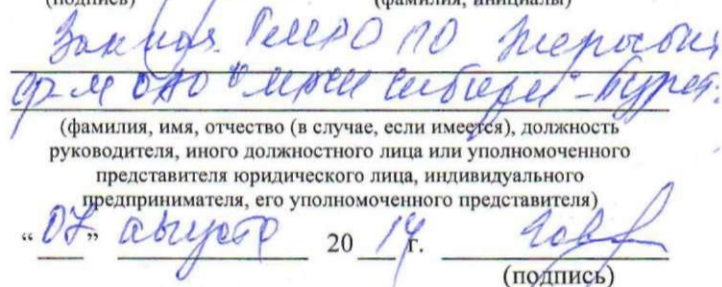 (подпись) (фамилия, инициалы)
по
ф-л ОАО "МРСК Сибири" -
(фамилия, имя, отчество (в случае, если имеется), должность
руководителя, иного должностного лица или уполномоченного
представителя юридического лица, индивидуального
предпринимателя, его уполномоченного представителя)
“ 07 ” августа 20 14 г.
(подпись)